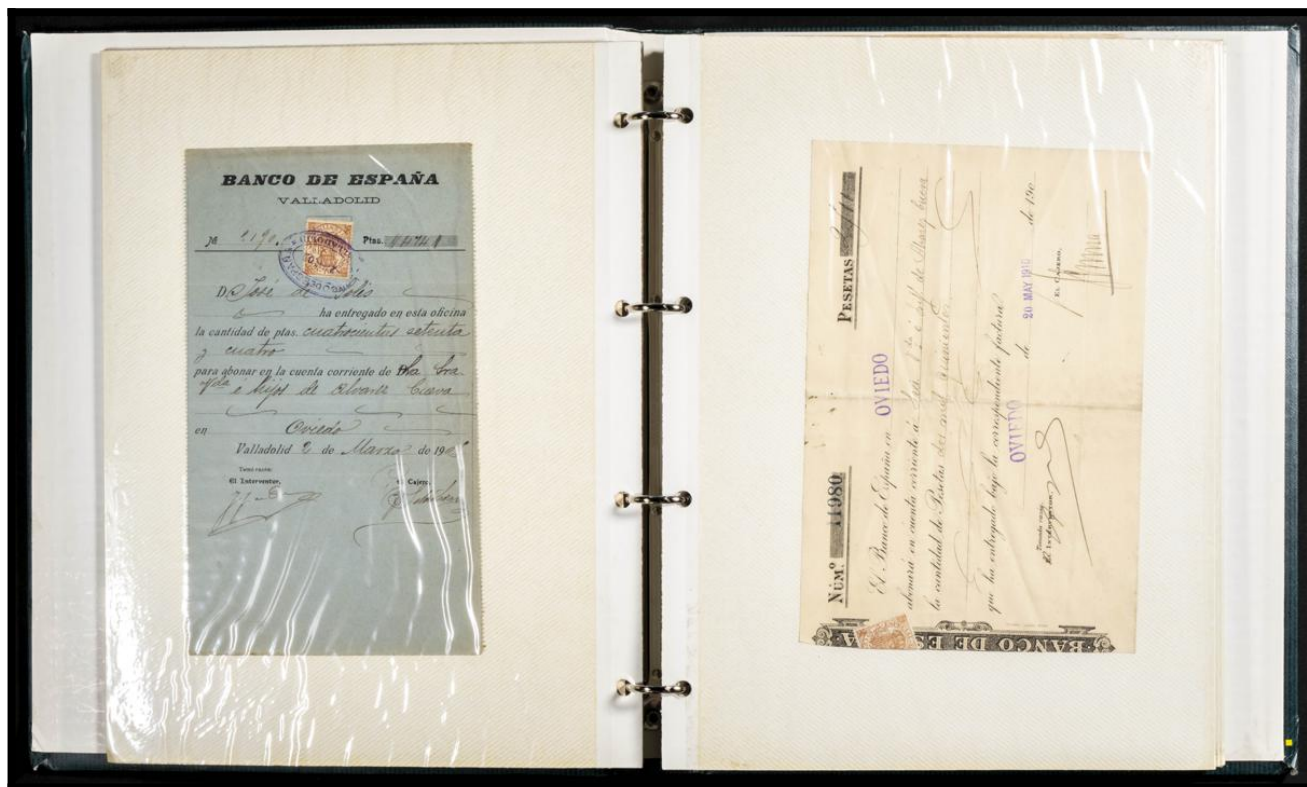 BANCO DE ESPAÑA
VALLADOLID
№ 2190. Ptas. 474
D. José de Solís
ha entregado en esta oficina
la cantidad de ptas. cuatrocientas setenta
y cuatro
para abonar en la cuenta corriente de
Vda é hijos de Alvaré Cueva
en Oviedo
Valladolid 2 de Marzo de 190
Tomé razón:
El Interventor, El Cajero,
NÚM.º 11980 PESETAS
El Banco de España en OVIEDO
abonará en cuenta corriente á
la cantidad de Pesetas dos mil quinientos
que ha entregado bajo la correspondiente factura
OVIEDO de 20 MAY 1910 de 190
Tomada razón
El Interventor EL CAJERO,
BANCO DE ESPAÑA